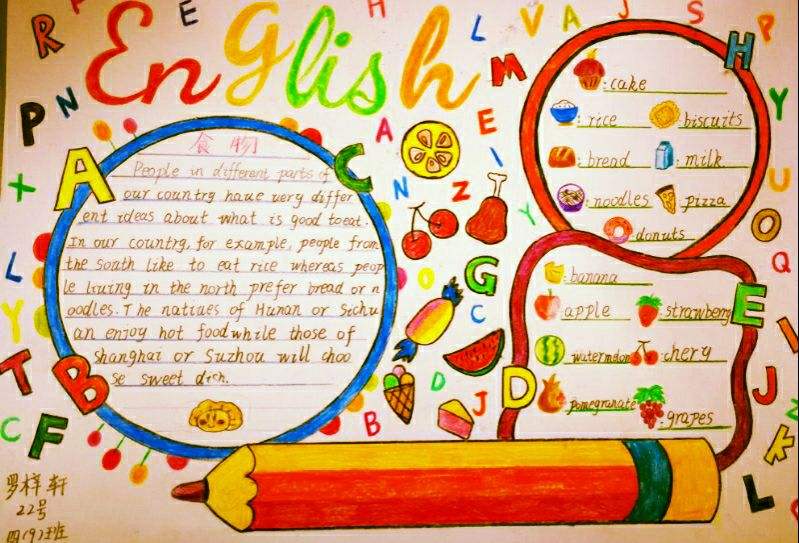 English
食物
People in different parts of
our country have very differ
ent ideas about what is good toeat.
In our country, for example, people from
the south like to eat rice whereas peop
le living in the north prefer bread or n
oodles. The natives of Hunan or Sichu
an enjoy hot food while those of
shanghai or Suzhou will choo
se sweet dich.
:cake
:rice
:biscuits
:bread
:milk
:noodles
:pizza
donuts
:banana
:apple
:strawberry
watermelon
:chery
:pomegranate
:grapes
R
E
H
L
V
A
J
S
P
P
N
M
H
Y
A
C
A
E
I
X
N
Z
Y
U
O
L
G
O
Q
Y
C
E
I
T
B
D
D
J
J
C
F
B
K
Z
L
22号
四(9)班